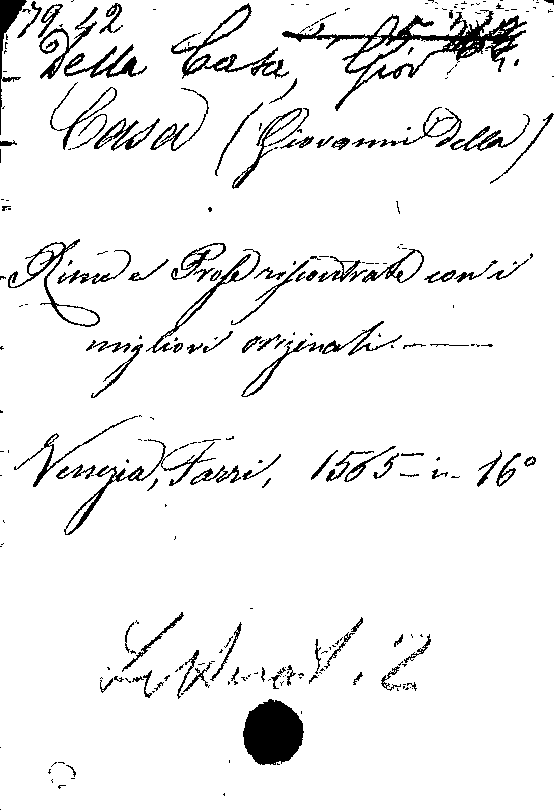 79.42
Della Casa, Giov
Casa (Giovanni Della)
Rime e Prose riscontrate con i
migliori originali.
Venezia, Farri, 1565 - in 16°
Letterat. 2